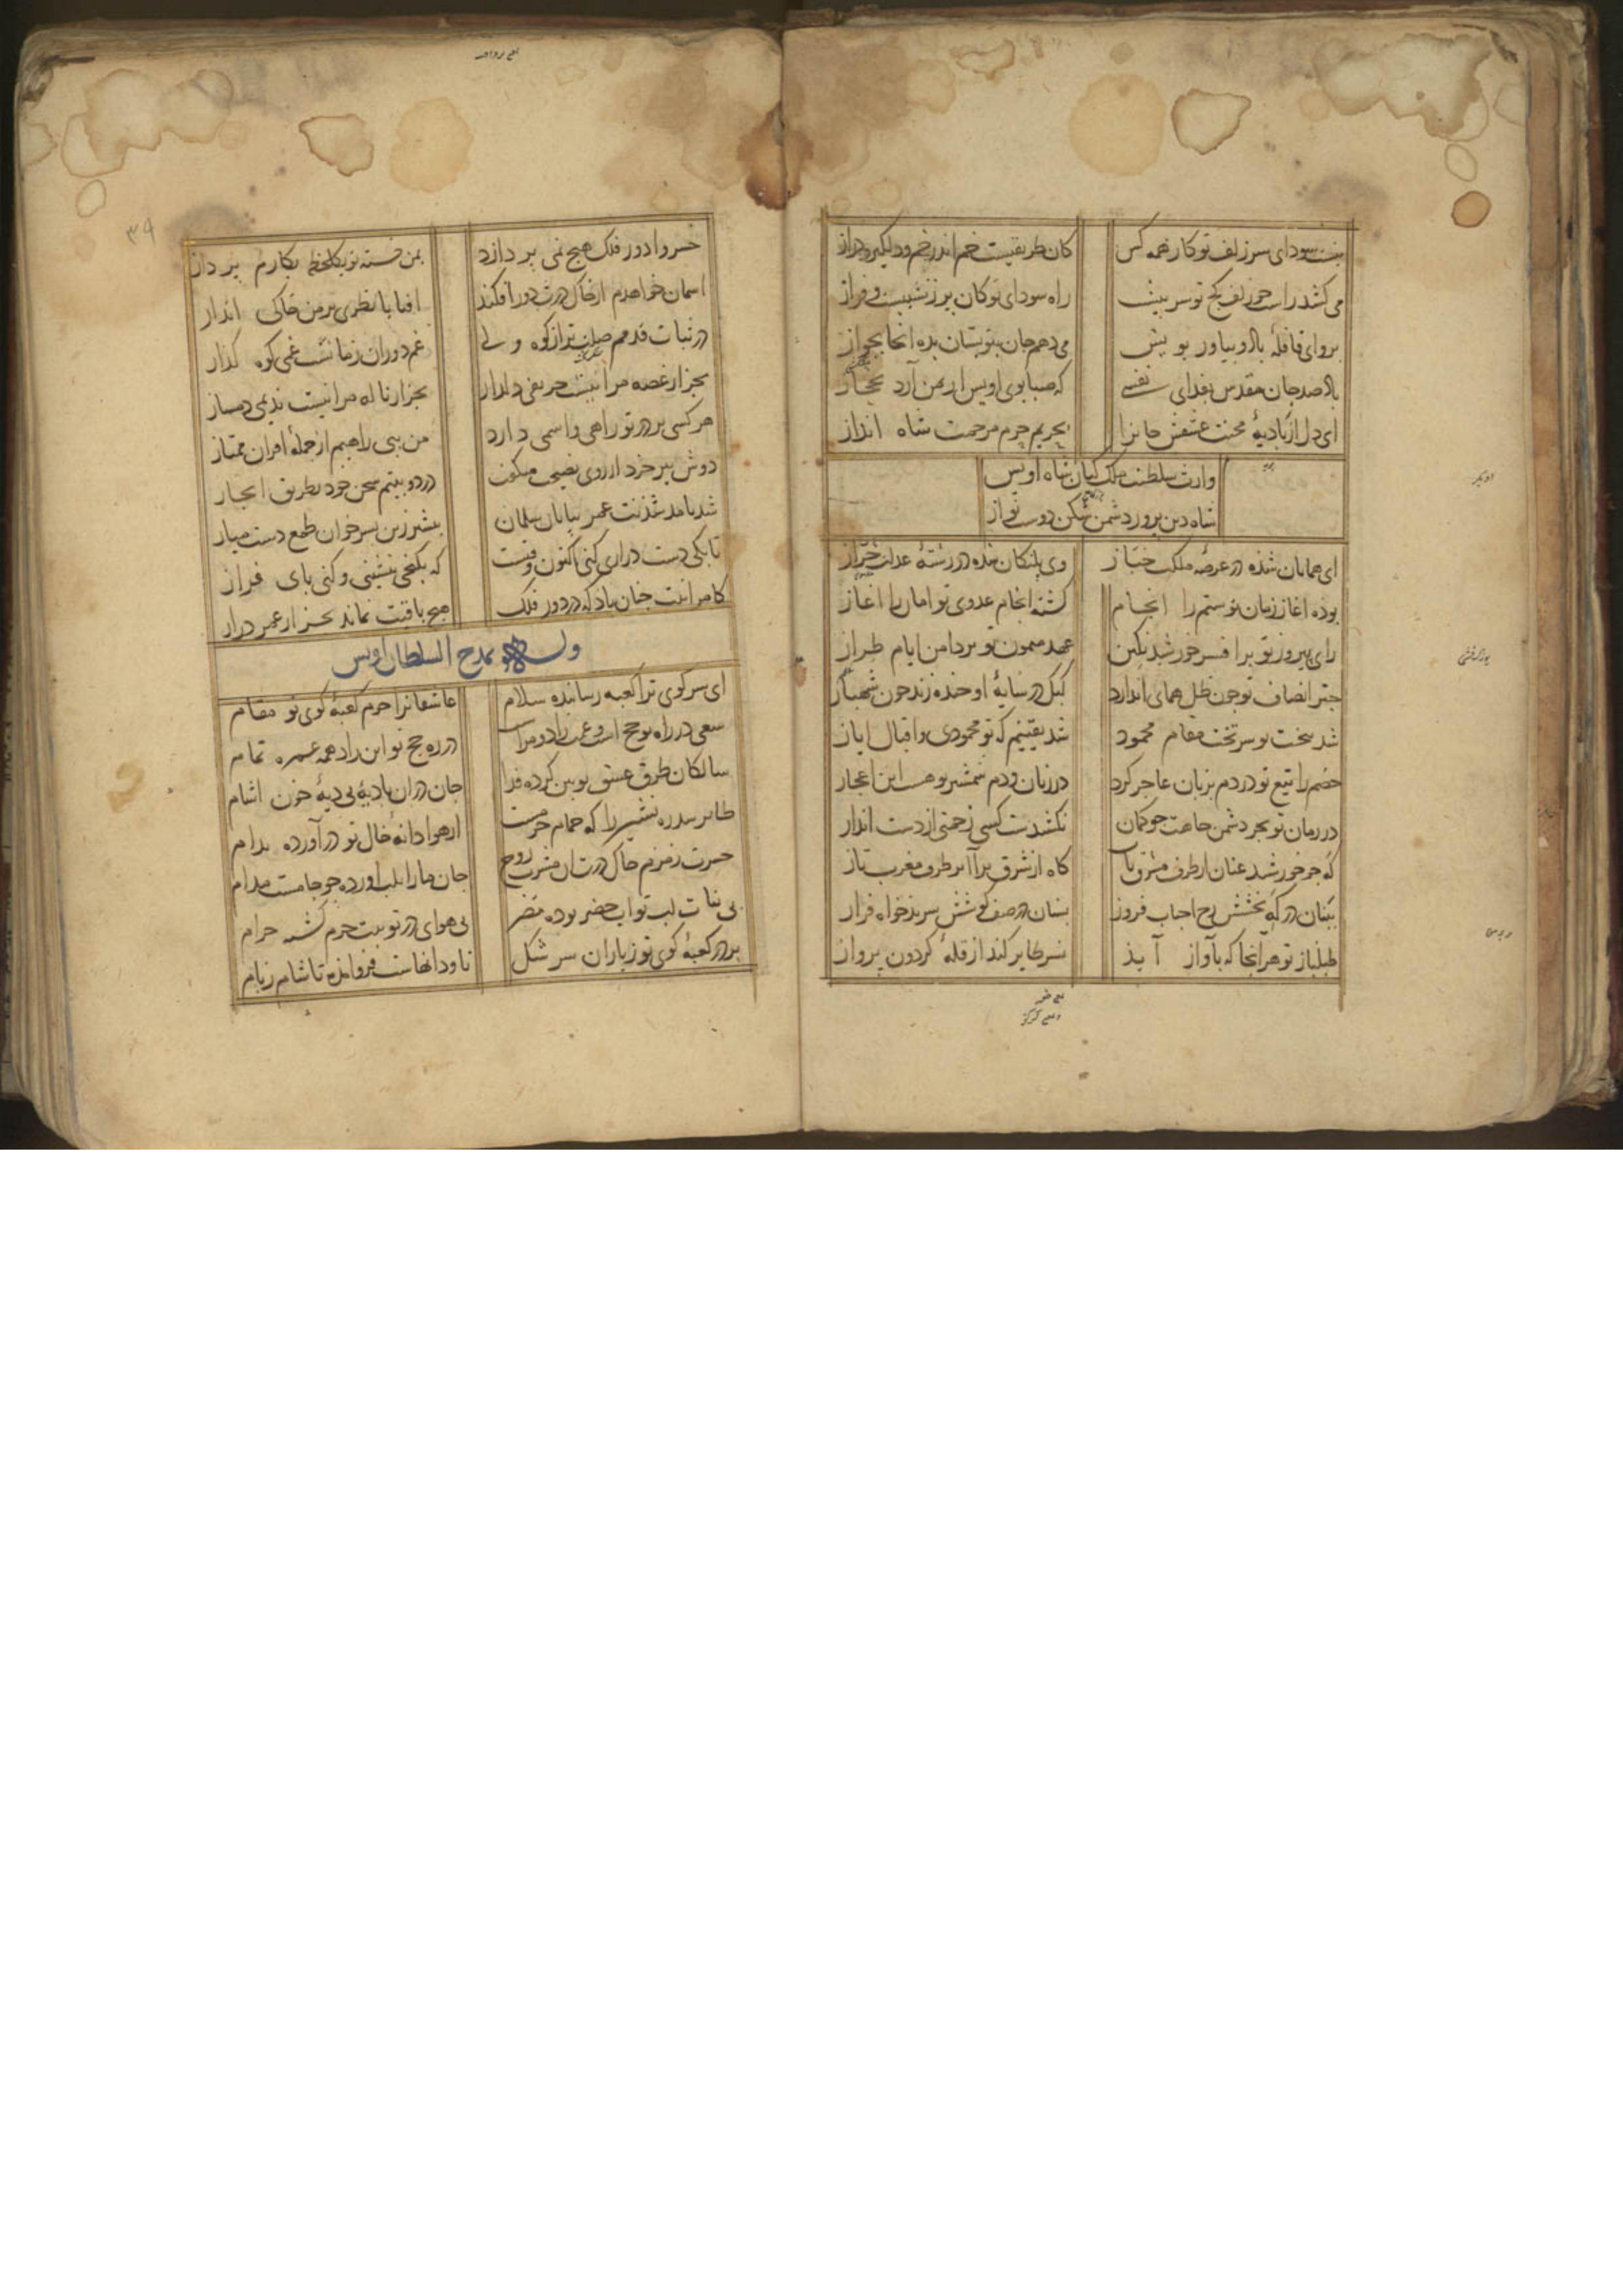 نیست سودای سر زلف تو کار همه کس
کان طریقیست خم اندر خم و دلگیر و دراز
می کشد راست جو زلف کج تو سر بیش
راه سودای تو کان بر ز نشیبست و فراز
برو ای قافله باد و بیاور بویش
می دهم جان بتو بستان بده انجا بجواز
باد صد جان مقدس بفدای نفسی
که صبا بوی اویس از یمن آرد بحجاز
ای دل از بادیهٔ محنت عشقش جانرا
بحریم حرم مرحمت شاه انداز
وارث سلطنت ملک کیان شاه اویس
شاه دین برور دشمن شکن دوست نواز
ای همایان شده در عرصه ملکت خباز
وی بلنکان شده در رشتهٔ عدلت خراز
بوده اغاز زمان تو ستم را انجام
کشته انجام عدوی تو امان را اغاز
رای بیروز تو بر افسر خورشید نکین
عهد میمون تو بر دامن ایام طراز
جتر انصاف تو جون ظل همای اندازد
کبک در سایهٔ او خنده زند جون شهباز
شد بتخت تو سر تخت مقام محمود
شد یقینم که تو محمودی و اقبال ایاز
خصم را تیغ تو در دم بزبان عاجز کرد
در زبان و دم شمشیر تو هست این اعجاز
در زمان تو بجز دشمن جاهت جو کمان
نکشیدست کسی زحمتی از دست انداز
که جو خورشید عنان از طرف مشرق تاب
کاه از شرق برآ بر طرف مغرب تاز
ببنان در که بخشش رخ احباب فروز
بسنان در صف کوشش سر بدخواه فراز
طبلباز تو هر انجا که بآواز آید
نسر طایر کند از قلهٔ کردون برواز
۳۹
خسروا دور فلک هیج نمی بردازد
بمن خسته تو یکلحظه بکارم برداز
اسمان خواهدم از خاک درت دور افکند
افتابا نظری بر من خاکی انداز
در ثبات قدمم صلب تراز کوه ولی
غم دوران زمانست غمی کوه کداز
بجز از غصه مرا نیست حریفی دلدار
بجز از ناله مرا نیست ندیمی دمساز
هر کسی بر در تو راهی و اسمی دارد
من بی راهیم از جملهٔ اقران ممتاز
دوش بیر خرد از روی نصیحت میکفت
در دو بیتم سخن خود بطریق ایجاز
شد بامد شذنت عمر ببایان سلمان
بیشتر زین بسر خوان طمع دست میاز
تا بکی دست درازی کنی اکنون وقتست
که بکنجی بنشینی و کنی بای فراز
کامرانیت جنان باد که در دور فلک
هیج باقیت نماند بجز از عمر دراز
وله بمدح السلطان اویس
ای سر کوی ترا کعبه رسانده سلام
عاشقانرا حرم کعبهٔ کوی تو مقام
سعی در راه تو حج است و غمت زاد و مرا
در ره حج تو این زاد همه عمره تمام
سالکان طرق عشق تو بین کرده فدا
جان در ان بادیهٔ بی دیهٔ خون اشام
طایر سدره نشین را که حمام حرمست
از هوا دانهٔ خال تو در آورده بدام
حسرت زمزم خاک درت ان مشرب روح
جان ما را بلب اورده جو جامست مدام
بی هوای در تو بیت حرم کشته حرام
بر در کعبهٔ کوی تو ز باران سرشکل
ناودانهاست فرو مانده تا شام ز بام